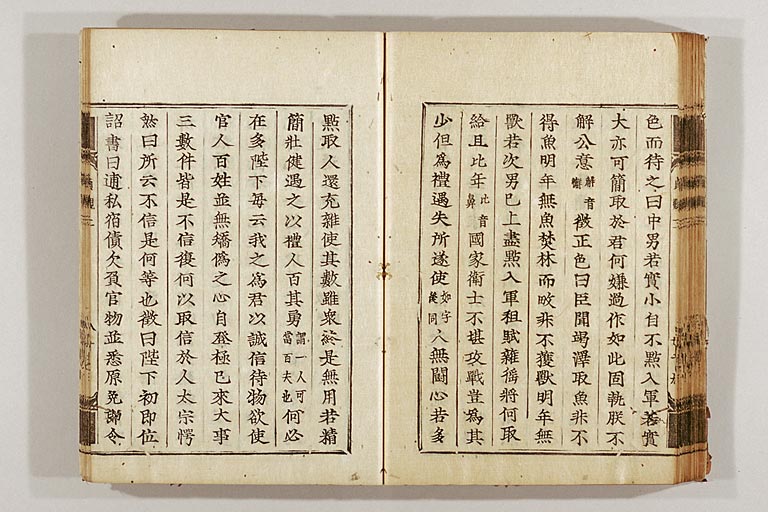 色而待之曰中男若實小自不點入軍若實
大亦可簡取於君何嫌過作如此固執朕不
解公意解音懈徵正色曰臣聞竭澤取魚非不
得魚明年無魚焚林而畋非不獲獸明年無
獸若次男已上盡點入軍租賦雜徭將何取
給且比年比音鼻國家衛士不堪攻戰豈爲其
少但爲禮遇失所遂使如字後同人無鬪心若多
點取人還充雜使其數雖衆終是無用若精
簡壯健遇之以禮人百其勇謂一人可當百夫也何必
在多陛下每云我之爲君以誠信待物欲使
官人百姓並無矯僞之心自登極已來大事
三數件皆是不信復何以取信於人太宗愕
然曰所云不信是何等也徵曰陛下初即位
詔書曰逋私宿債欠負官物並悉原免即令